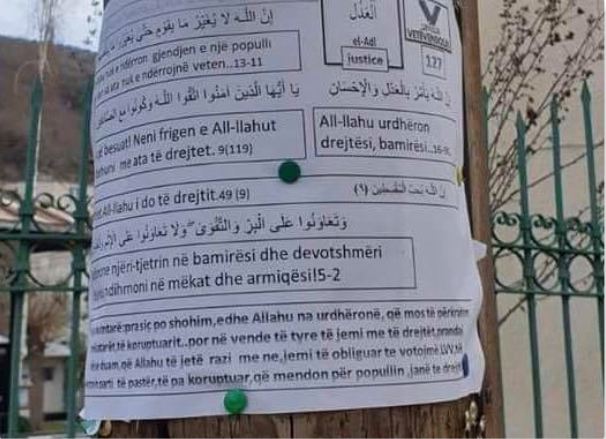 إِنَّ اللَّهَ لَا يُغَيِّرُ مَا بِقَوْمٍ حَتَّىٰ يُغَيِّرُوا مَا
ndërron gjendjen e një populli
ata nuk e ndërrojnë veten..13-11
الْعَدْلُ
el-Adl
justice
VETËVENDOSJE
127
يَا أَيُّهَا الَّذِينَ آمَنُوا اتَّقُوا اللَّهَ وَكُونُوا مَعَ
إِنَّ اللَّهَ يَأْمُرُ بِالْعَدْلِ وَالْإِحْسَانِ
besuat! Neni frigen e All-llahut
me ata të drejtet. 9(119)
All-llahu urdhëron
drejtësi, bamirësi..16-
All-llahu i do të drejtit.49 (9)
إن الله يحب المقسطين (٩)
وَتَعَاوَنُوا عَلَى الْبِرِّ وَالتَّقْوَىٰ وَلَا تَعَاوَنُوا عَلَى
njëri-tjetrin në bamirësi dhe devotshmëri
ndihmoni në mëkat dhe armiqësi!5-2
prasiç po shohim,edhe Allahu na urdhëronë, që mos të
të koruptuarit..por në vende të tyre të jemi me të drejtët,
Allahu të jetë razi me ne,jemi të obliguar te votojmë LVV,
parti të pastër,të pa koruptuar,që mendon për popullin ,janë te